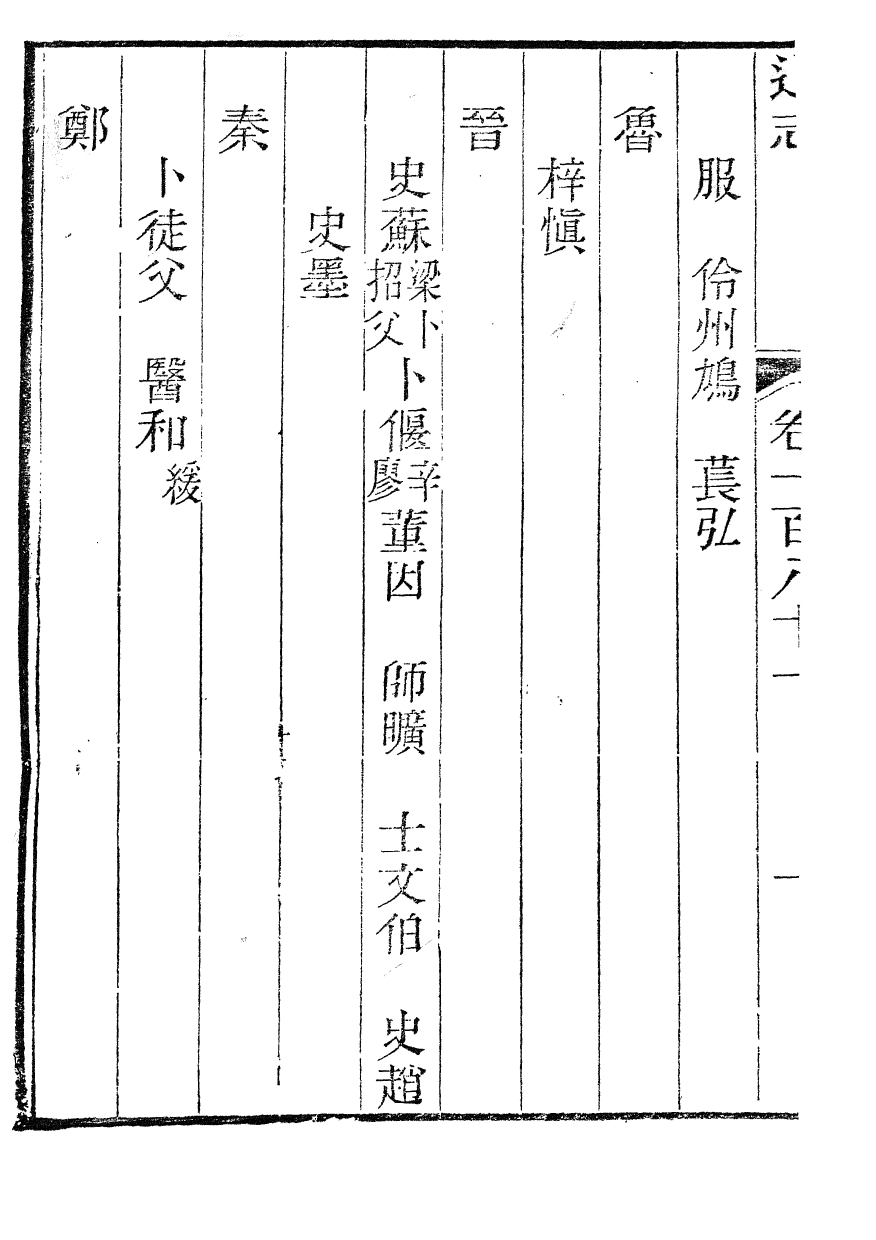 通志 卷一百八十一 一
服 伶州鳩 萇弘
魯
梓慎
晉
史蘇梁卜招父卜偃辛廖董因 師曠 士文伯 史趙
史墨
秦
卜徒父 醫和緩
鄭